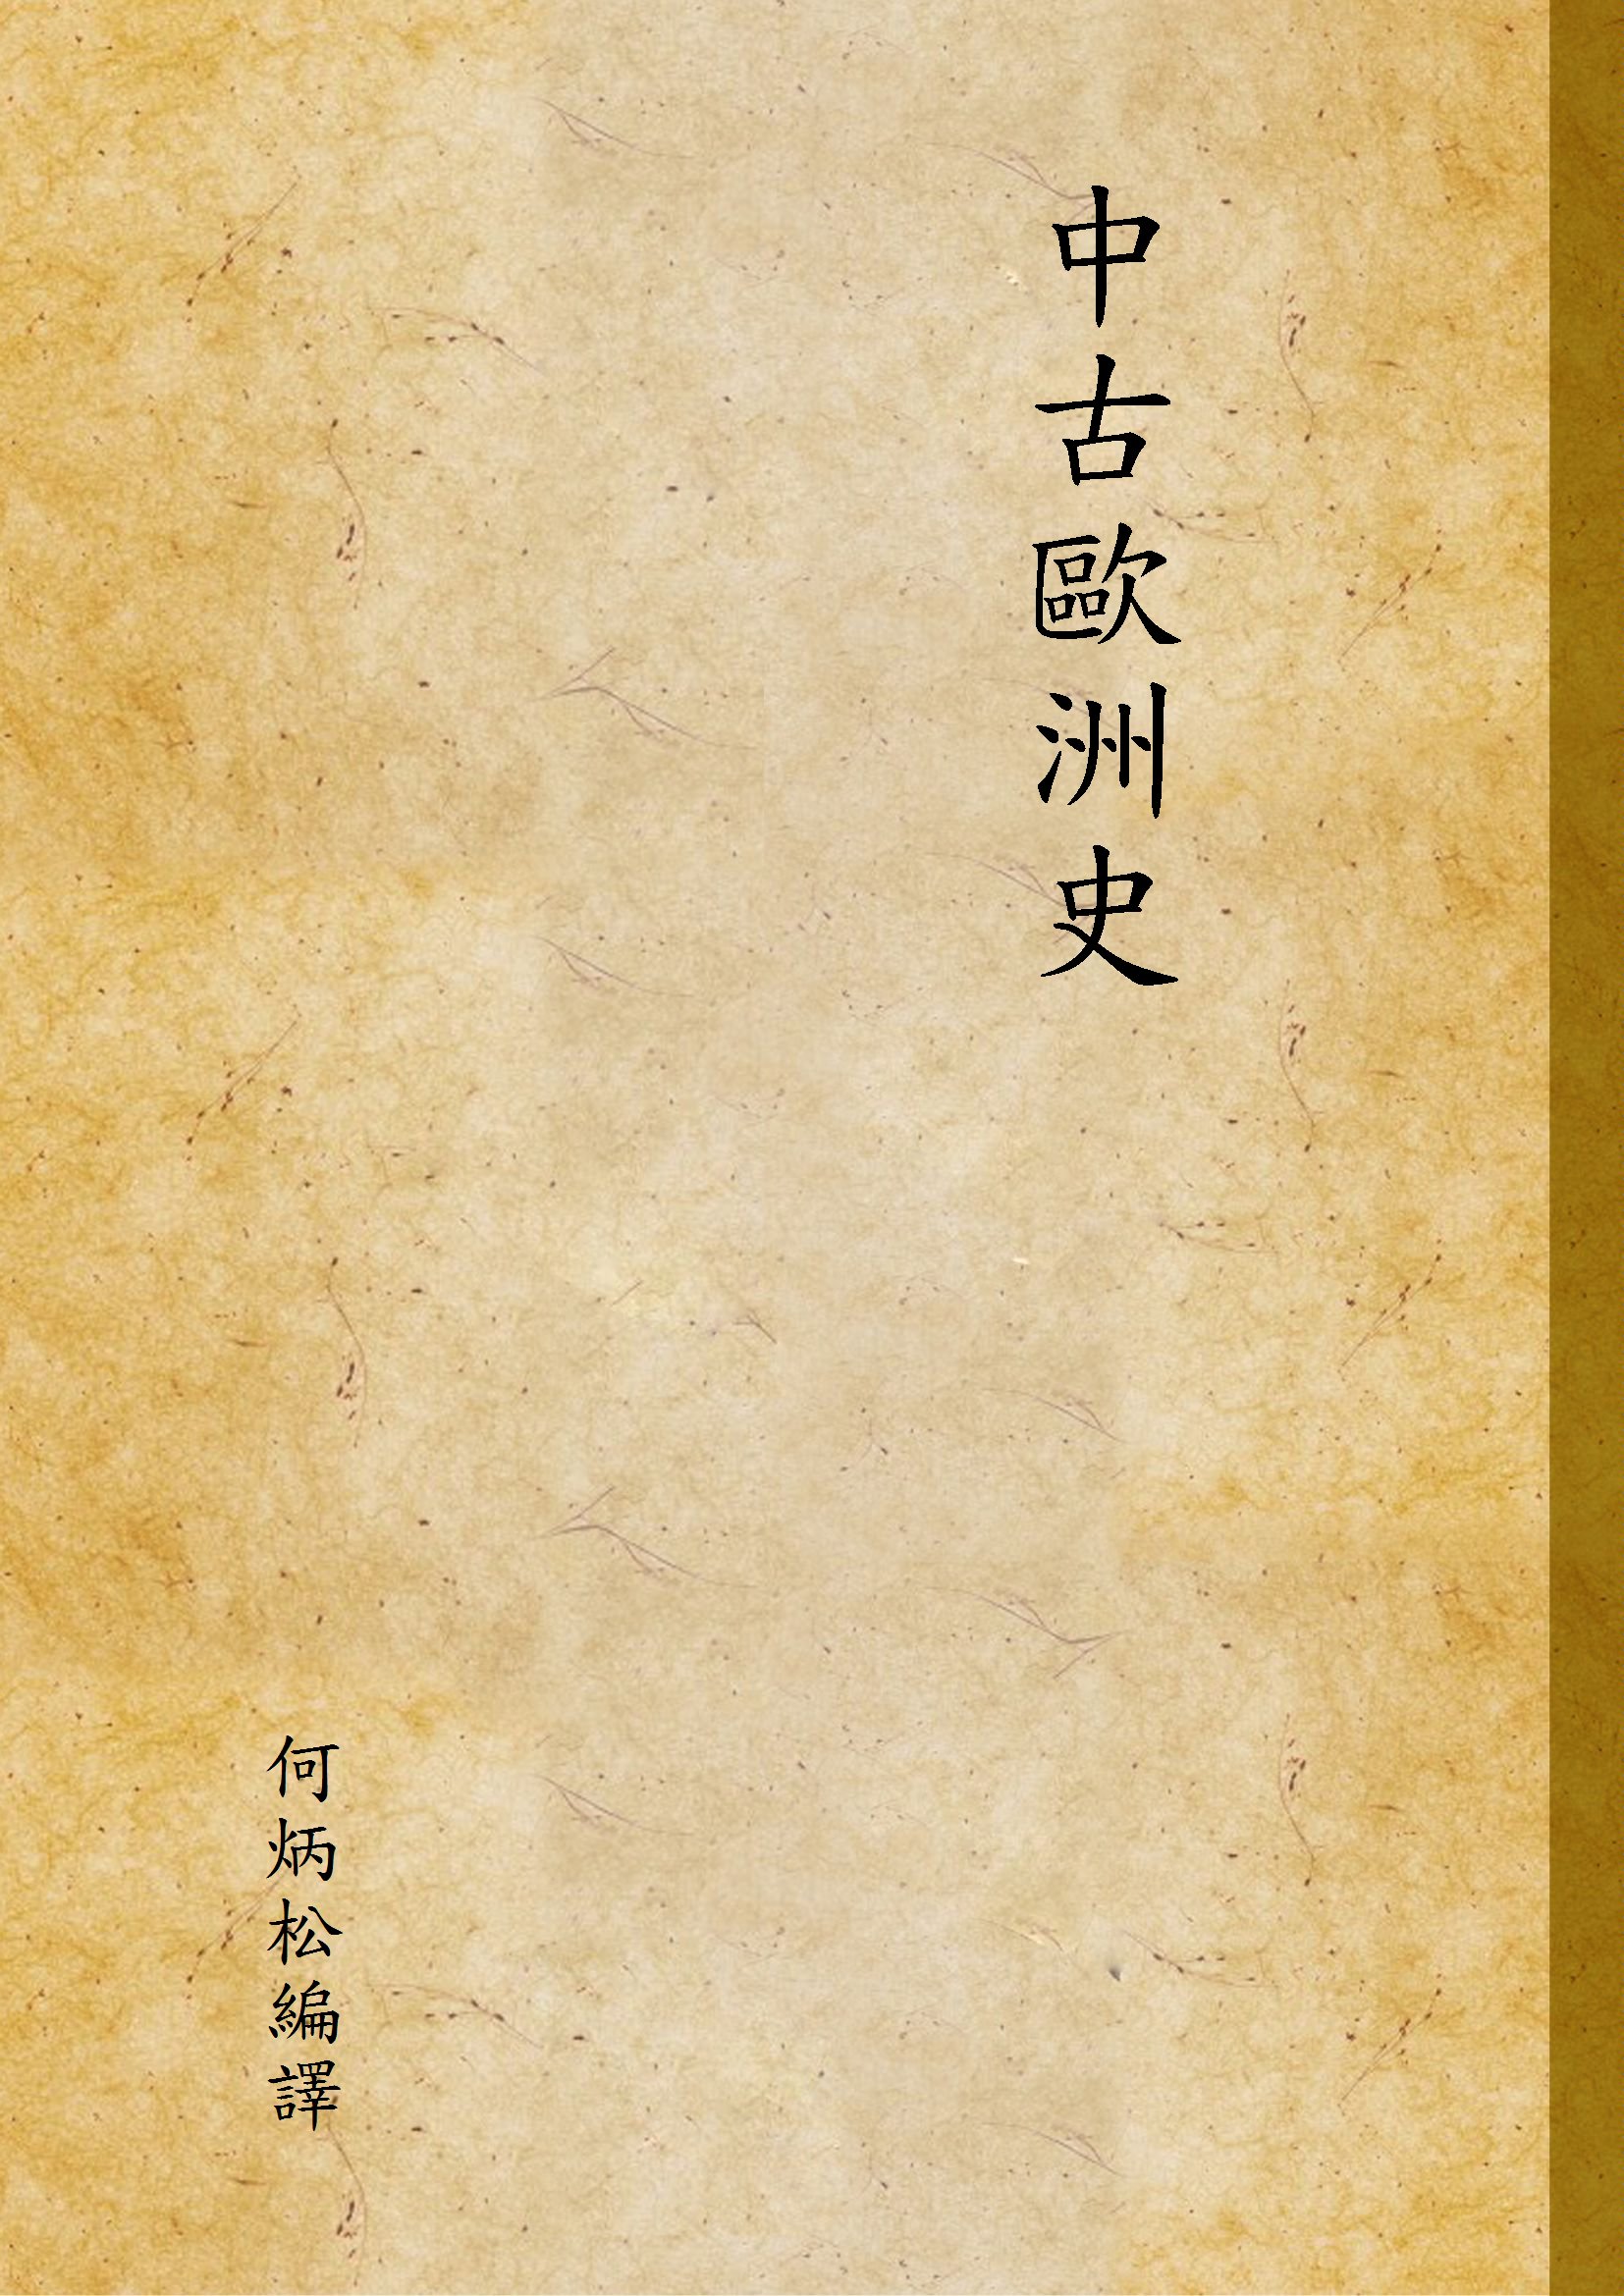 中古歐洲史
何炳松編譯